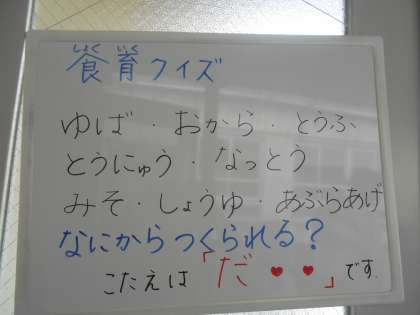 食育クイズ
ゆば・おから・とうふ
とうにゅう・なっとう
みそ・しょうゆ・あぶらあげ
なにからつくられる？
こたえは「だ♥♥」です。